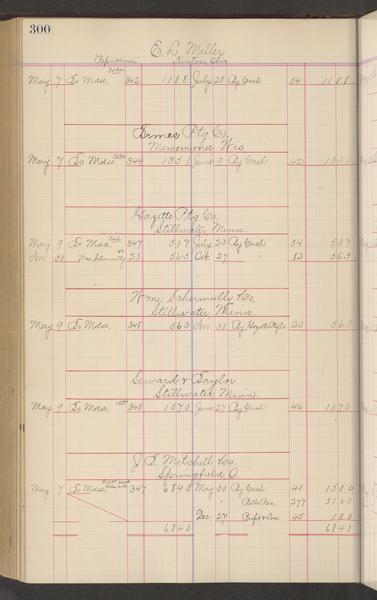 300
E. L. Miller
"Republican" Kenton, Ohio
May 7 To Mdse. 342 1188 July 28 By Cash 54 1188
Times Ptg Co,
Menomonie Wis
May 7 To Mdse 344 1351 June 9 By Cash 42 1351
Gazette Ptg Co.
Stillwater Minn.
May 9 To Mdse. 347 507 July 23 By Cash 54 507
Nov. 30 20 563 Oct. 27 82 563
Wm. & Co,
Stillwater Minn.
May 9 To Mdse. 348 563 Nov. 30 By Gazette 20 563
Seward & Taylor
Stillwater Minn.
May 9 To Mdse. 348 1070 June 27 By Cash 46 1070
J. E. Mitchell & Co.
Springfield O.
May 7 To Mdse. 347 6840 May 30 By Cash 40 1500
Bills Rec. 277 5160
Dec. 27 Profit & Loss 45 180
6840 6840